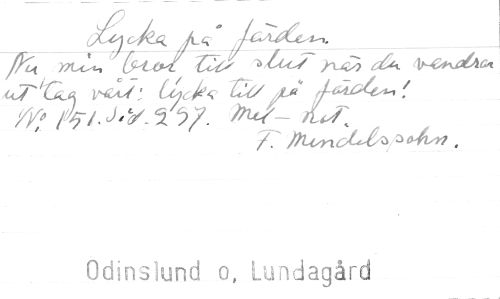 Lycka på färden.
Nu, min bror till slut när du vandrar
ut tag vårt: lycka till på färden!
No. 151. Sid. 297. Mel-not.
F. Mendelssohn.
Odinslund o, Lundagård